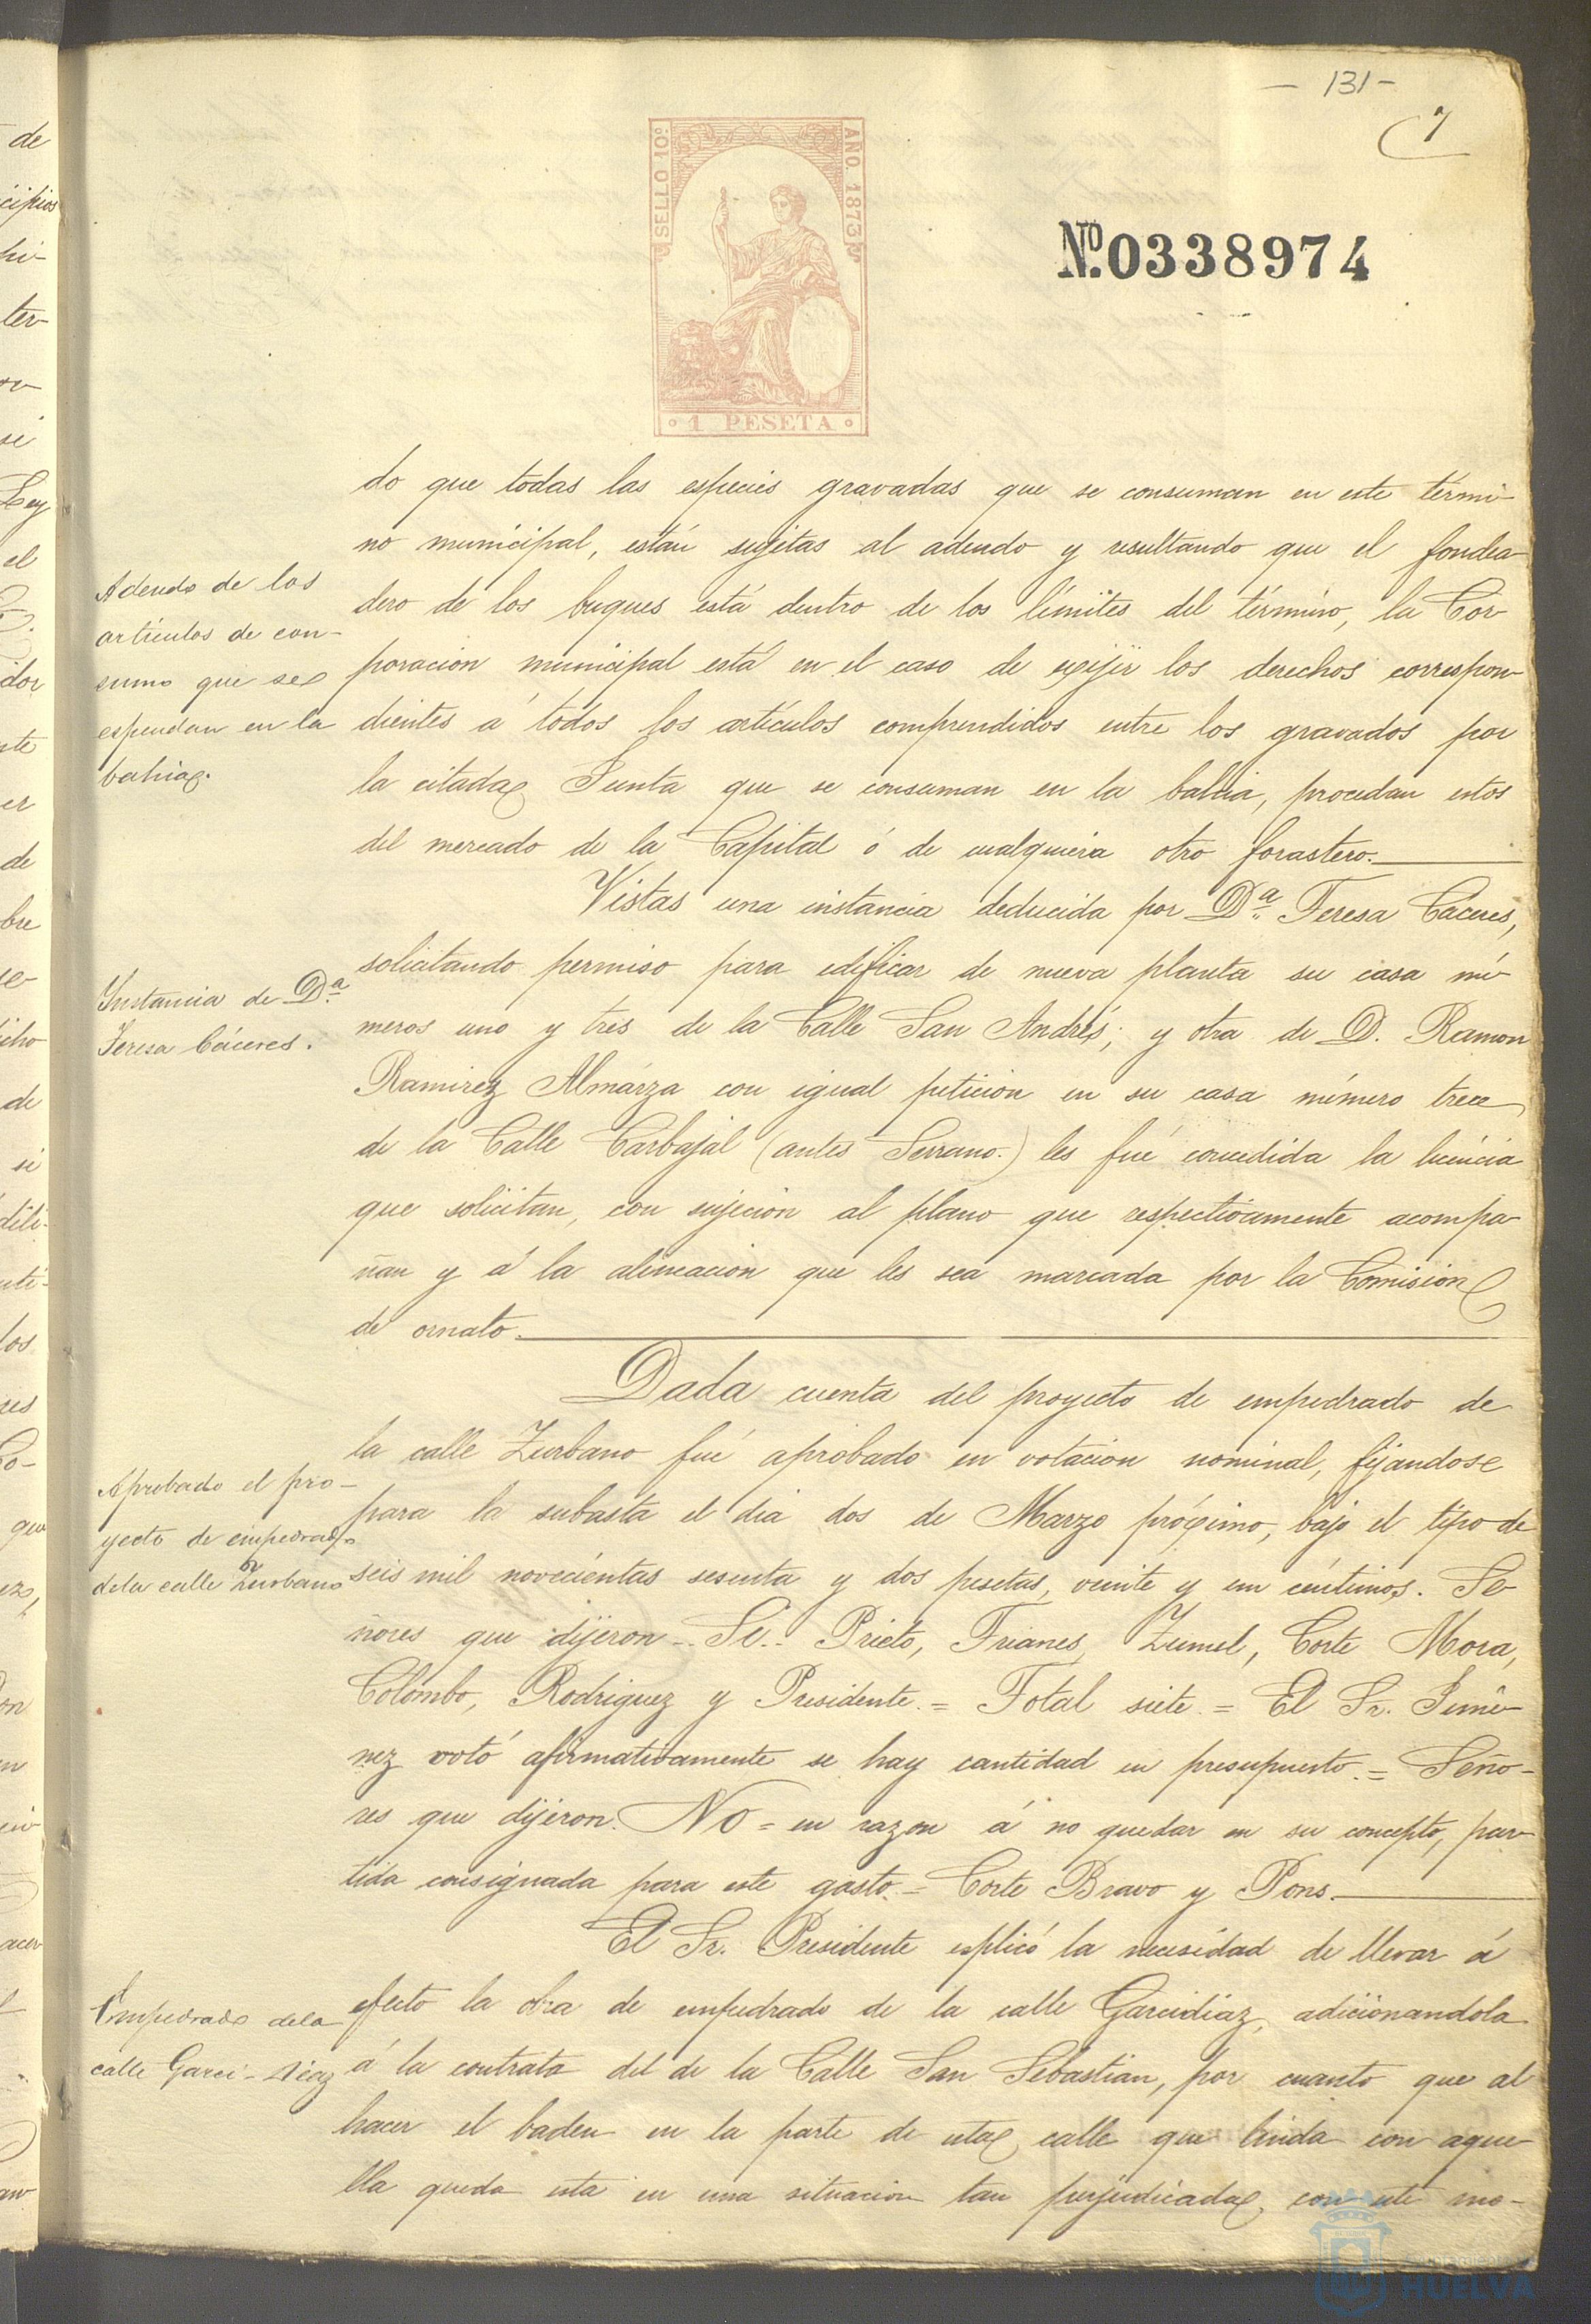 - 131 -
7
SELLO 10º
AÑO. 1873
1 PESETA
Nº.0338974
do que todas las especies gravadas que se consuman en este térmi-
no municipal, están sujetas al adeudo y resultando que el fondea-
dero de los buques está dentro de los límites del término, la Cor-
poracion municipal está en el caso de exijir los derechos correspon-
dientes á todos los artículos comprendidos entre los gravados por
la citada Junta que se consuman en la bahia, procedan estos
del mercado de la Capital ó de cualquiera otro forastero.
Adeudo de los
artículos de con-
sumo que se
espendan en la
bahia.
Vistas una instancia deducida por Dª Teresa Caceres,
solicitando permiso para edificar de nueva planta su casa nú-
meros uno y tres de la Calle San Andrés; y otra de D. Ramon
Ramirez Almárza con igual peticion en su casa número trece
de la Calle Carbajal (antes Serrano.) les fué concedida la licencia
que solicitan, con sujecion al plano que respectivamente acompa-
ñan y á la alineacion que les sea marcada por la Comision
de ornato.
Instancia de Dª
Teresa Cáceres.
Dada cuenta del proyecto de empedrado de
la calle Zurbano fué aprobado en votacion nominal, fijandose
para la subasta el dia dos de Marzo próximo, bajo el tipo de
seis mil novecientas sesenta y dos pesetas, veinte y un céntimos. Se-
ñores que dijeron-- Si.- Prieto, Trianes, Zumel, Corte Mora,
Colombo, Rodriguez y Presidente.= Total siete.= El Sr. Jimé-
nez votó afirmativamente se hay cantidad en presupuesto.= Seño-
res que dijeron. No = en razon á no quedar en su concepto, par-
tida consignada para este gasto.= Corte Bravo y Pons.
Aprobado el pro-
yecto de empedrado
de la calle Zurbano
El Sr. Presidente esplicó la necesidad de llevar á
efecto la obra de empedrado de la calle Garcidiaz, adicionandola
á la contrata del de la Calle San Sebastian, por cuanto que al
hacer el baden en la parte de esta calle que linda con aque-
lla queda esta en una situacion tan perjudicada, con este mo-
Empedrado de la
calle Garci-Diaz
Ayuntamiento
HUELVA